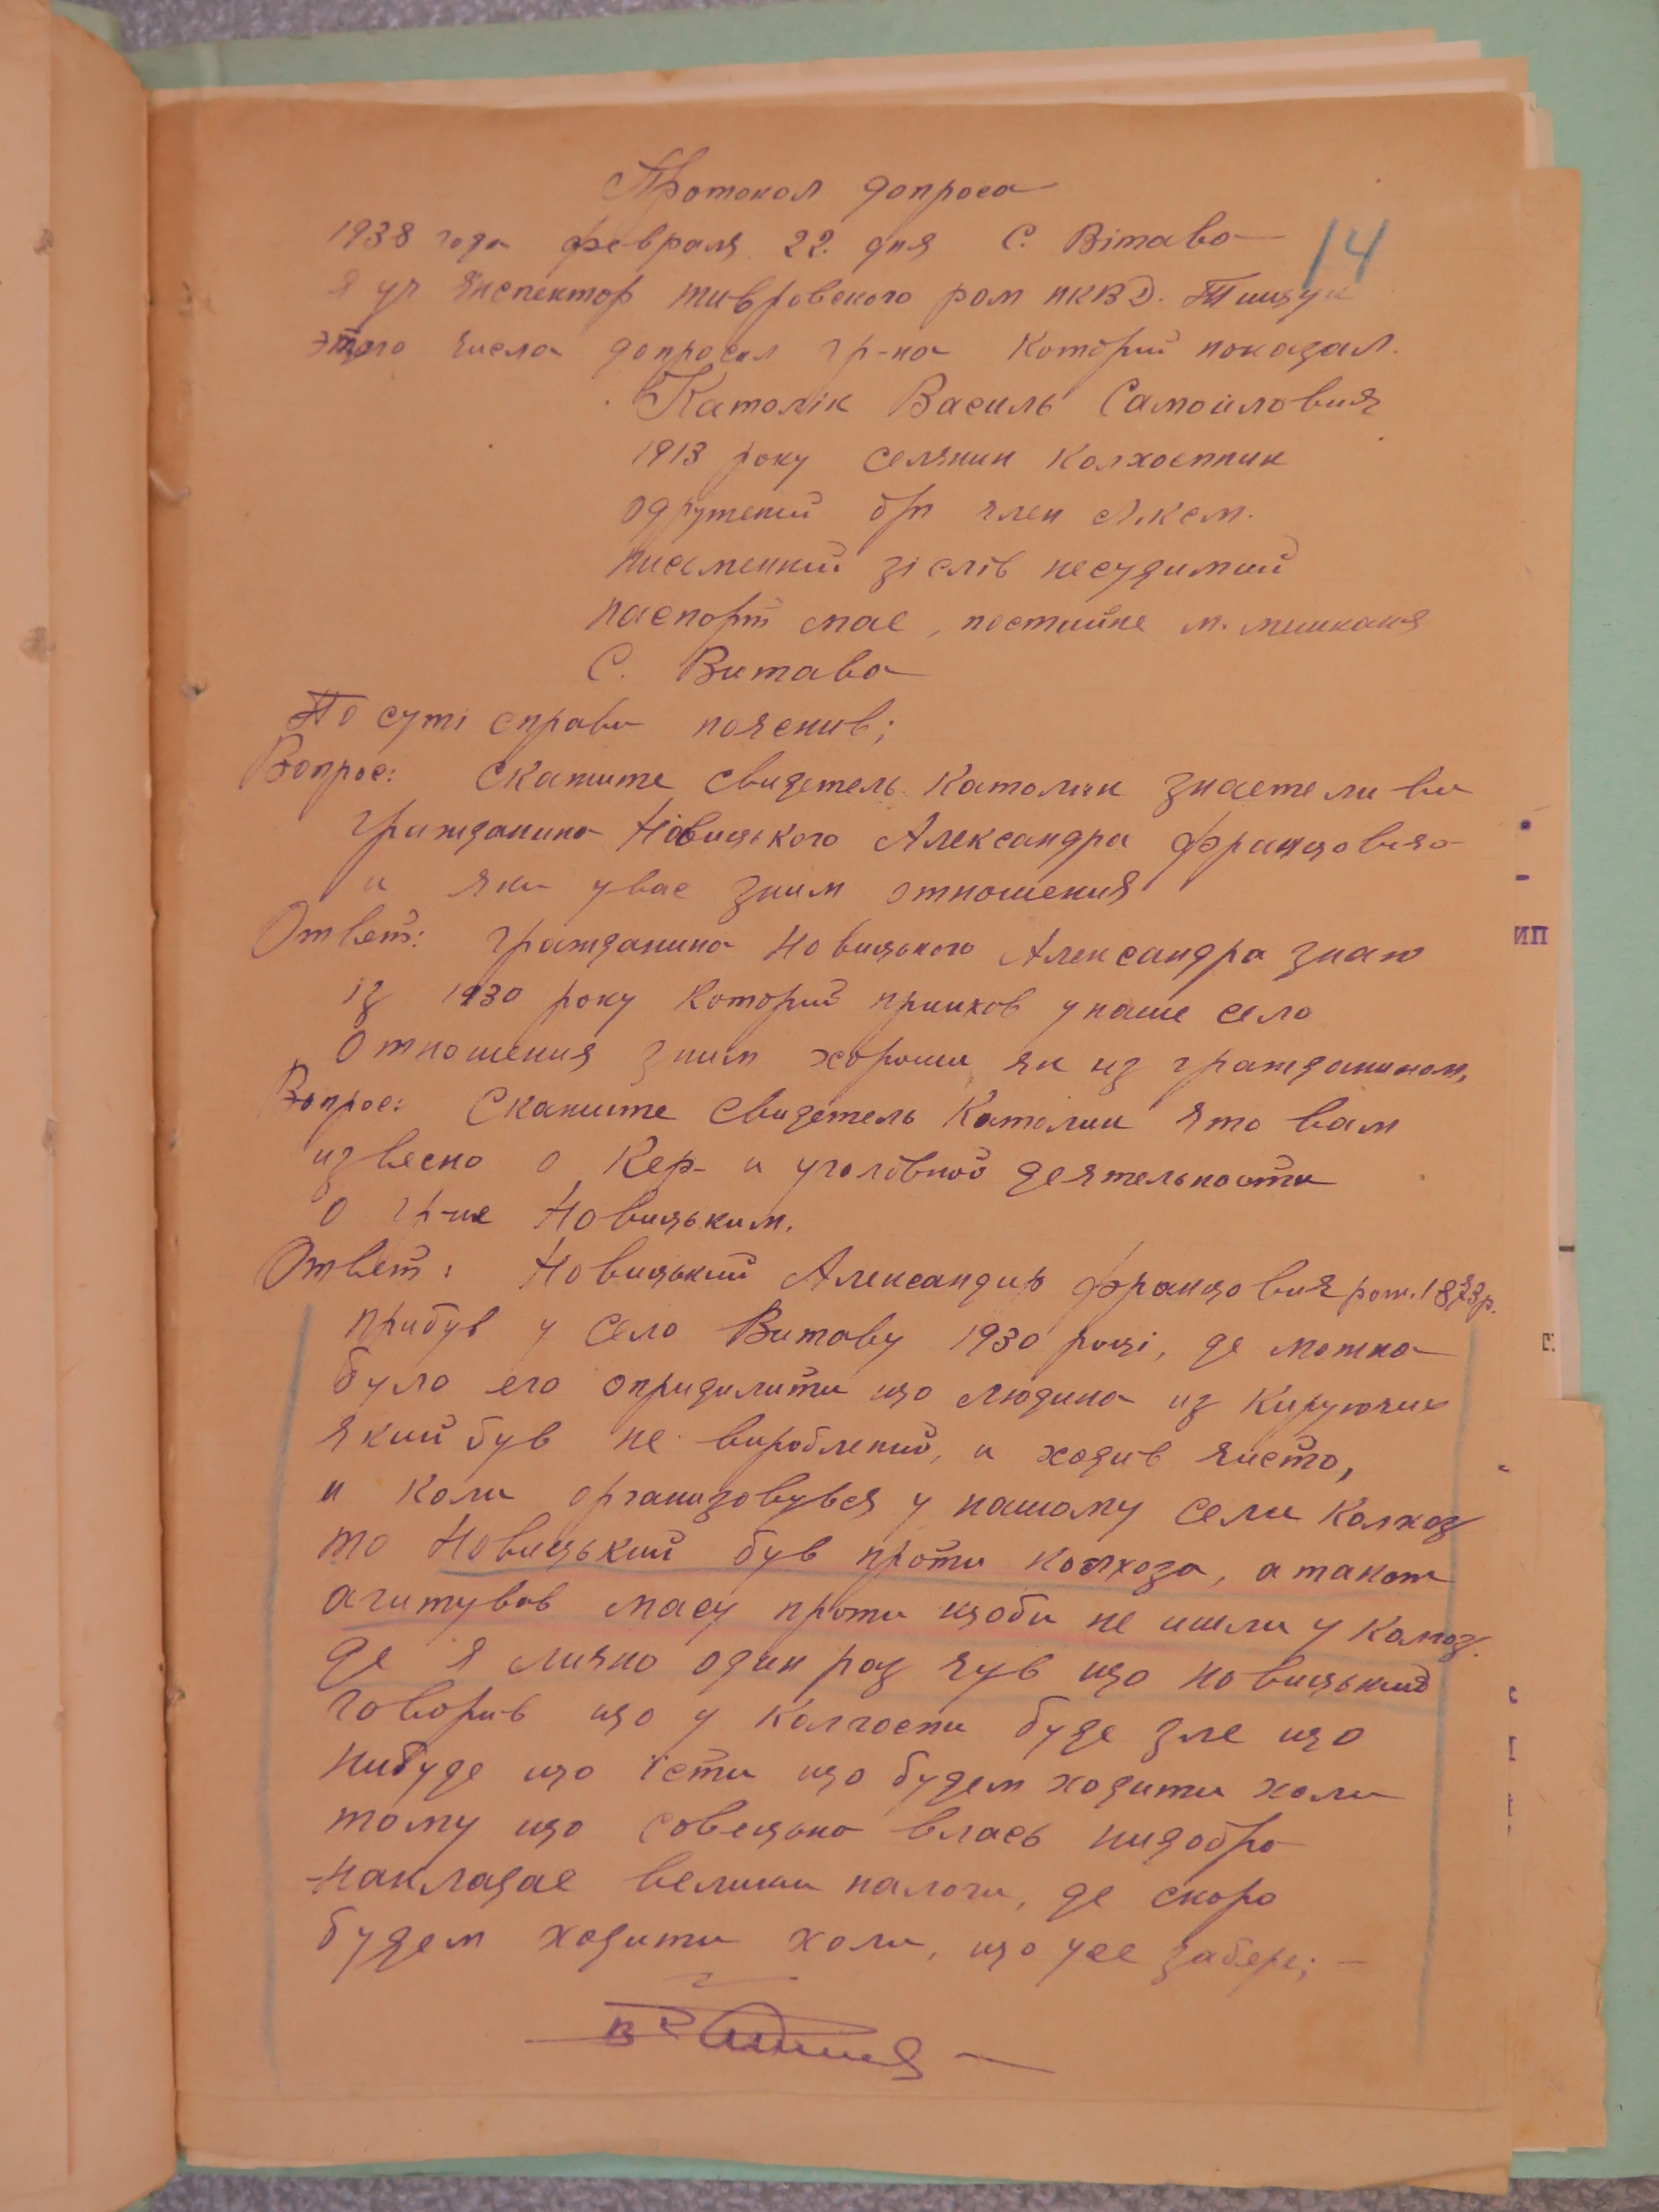 Протокол допроса
1938 года февраля 22. дня С. Вітава
14
Я уч Инспектор тивровского ром НКВД. Тищук
этого числа допросил гр-на Который показал.
Католік Василь Самойлович
1913 року селянин Колхоспник
одружений бр член ЛКСМ.
писменний зі слів несудимий
паспорт має, постийне м. мешканя
С. Витава
По суті справи пояснив;
Вопрос: Скажите свидетель Католик знаете ли ви
гражданина Новицького Александра Францовича
и яки увас зним отношения
Ответ: гражданина Новицького Александра знаю
із 1930 року Который приихов у наше село
Отношения зним хороши як из гражданином,
Вопрос: Скажите Свидетель Католик что вам
извесно о Кср- и уголовной деятельности
о гр-не Новицьким.
Ответ: Новицький Александир Францович рож.
прибув у село Витаву 1930 році, де можно
було его опридилити що людина из Кируючих
який був не вироблений, и ходив чисто,
и коли организовувся у нашому сели Колхоз
то Новицький був проти колхоза, а также
агитував масу проти щоби не ишли у Колхоз.
де я лично один раз чув що Новицький
говорив що у колгоспи буде зле що
нибуде що їсти що будем ходити холи
тому що совецька влась нидобра
накладає велики налоги, де скоро
будем ходити холи, що усе забере; —